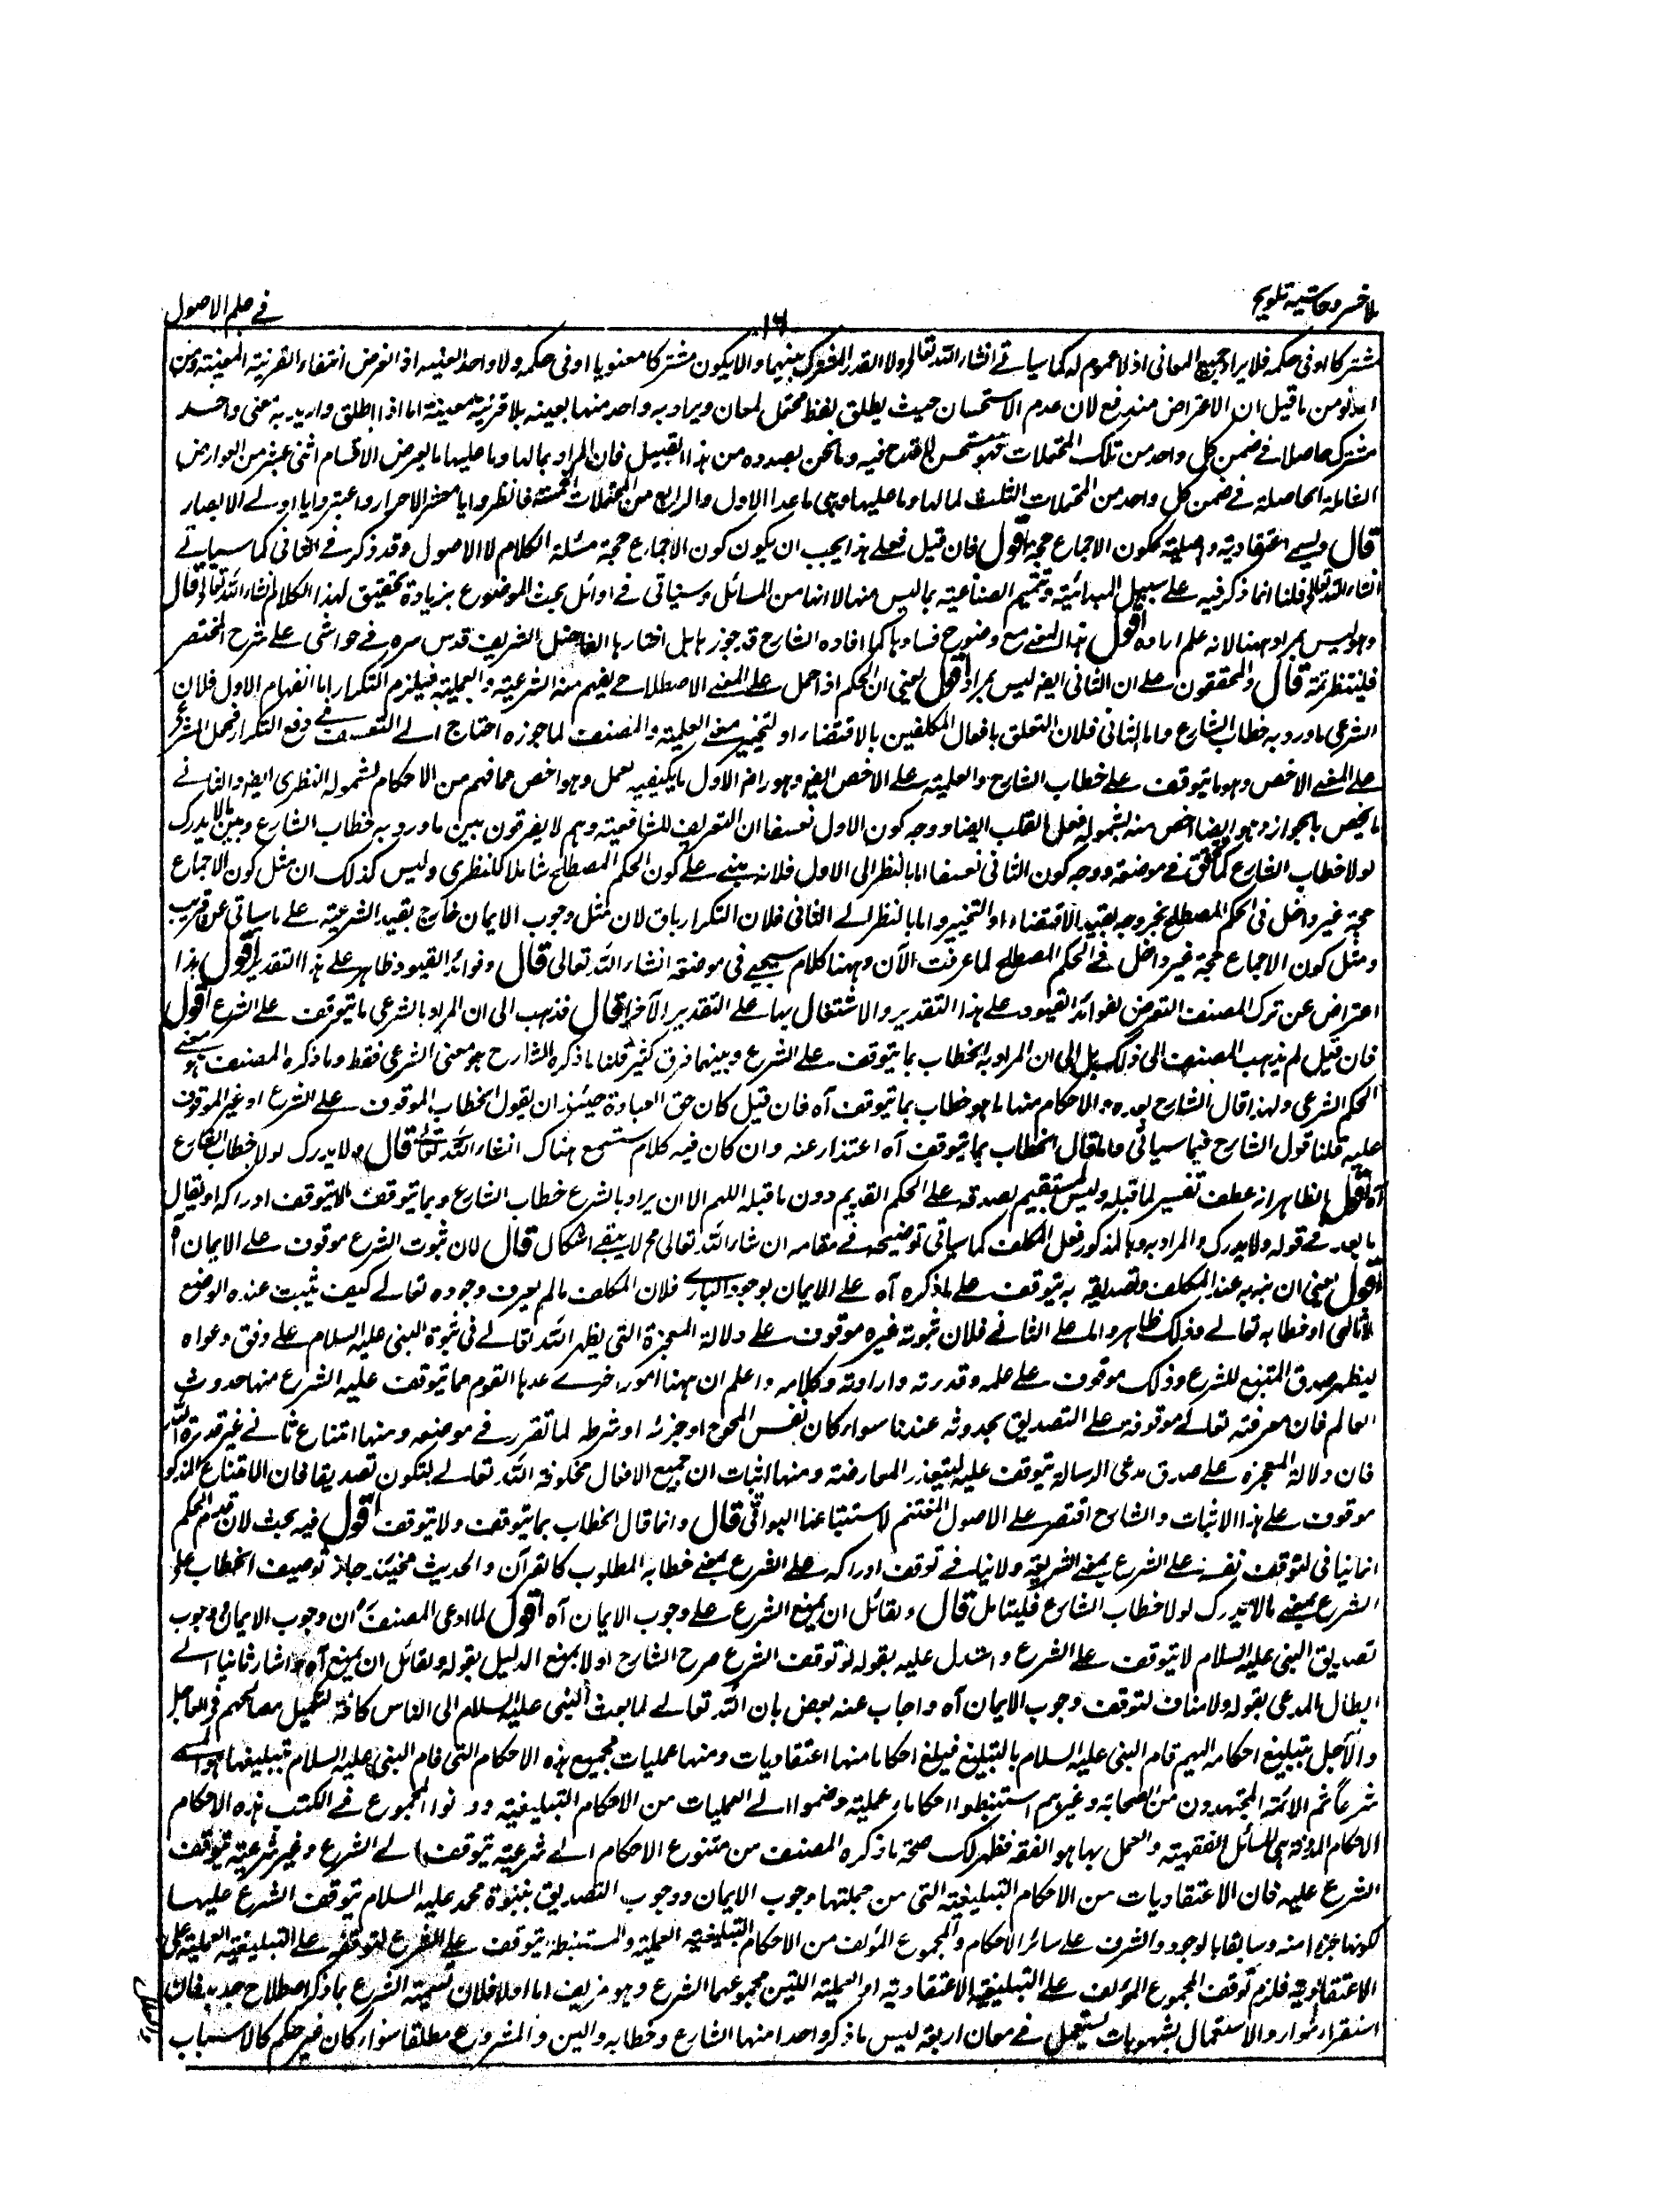 لا خسرو حاشیة تلویح
۱۶
فی علم الاصول
مشترکا اوفی حکمه فلا یراد جمیع المعانی اذ لا عموم له کما سیاتے انشاء اللہ تعالی ولا القدر المشترک بینهما والا یکون مشترکا معنویا اوفی حکمه ولا واحد العینه اذ الفرض انتفاء القرینة المعینة ومن
من ما قیل ان الاعتراض مندفع لان عدم الاستحسان حیث یطلق لفظ محتمل لمعان ویراد به واحد منها بعینه بلا قرینة معینة اما اذا اطلق وارید به معنی واحد
مشترک حاصلا فے ضمن کل واحد من تلک المحتملات فهو مستحسن لا قدح فیه وما نحن بصدده من هذا القبیل فان المراد بمالها وما علیها ما یعرض الاقسام اثنی عشر من العوارض
الحاصلة فے ضمن کل واحد من المحتملات الثلث لمالها وما علیها وهی ما عدا الاول والرابع من المحتملات الخمسة فانظروا یا معشر الاحرار واعتبروا یا اولے الابصار
قال ویسے اعتقادیة واصلیة ککون الاجماع حجة اقول فان قیل فعلے هذا یجب ان یکون کون الاجماع حجة مسئلة الکلام لا الاصول وقد ذکر فے الثانی کما سیاتے
انشاء اللہ تعالی قلنا انما ذکر فیه علے سبیل المبدائیة وتتمیم الصناعیة بما لیس منها لا انها من المسائل وسیاتی فے اوائل بحث الموضوع بزیادة تحقیق لهذا الکلام انشاء اللہ تعالی قال
وهو لیس بمراد ههنا لانه علم اراده اقول هذا المعنے مع وضوح فسادها کما افاده الشارح قد جوزها بل اختارها الفاضل الشریف قدس سره فے حواشی علے شرح المختصر
فلینتظر ثمة قال والمحققون علے ان الثانی ایضا لیس بمراد اقول یعنی ان الحکم اذا حمل علے المعنے الاصطلاحے یفهم منه الشرعیة والعملیة فیلزم التکرار اما انفهام الاول فلان
الشرعی ما ورد به خطاب الشارع واما الثانی فلان التعلق بافعال المکلفین بالاقتضاء او التخییر معنے العملیة والمصنف لما جوزه احتاج الے التعسف فے دفع التکرار فحمل الشرعی
علے المعنے الاخص وهو ما یتوقف علے خطاب الشارع والعملیة علے الاخص ایضا وهو راٰ الاول ما یکیفیه لعمل وهو اخص مما فهم من الاحکام لشموله النظری ایضا والثانے
ما یخص بالجوارح وهو ایضا اخص منه لشموله فعل القلب ایضا ووجه کون الاول تعسفا ان التعریف للشافعیة وهم لا یفرقون بین ما ورد به خطاب الشارع وبین ما لا یدرک
لولا خطاب الشارع کما حقق فے موضعه ووجه کون الثانی تعسفا اما بالنظر الی الاول فلانه یبنے علے کون الحکم المصطلح شاملا للنظری ولیس کذلک ان مثل کون الاجماع
حجة غیر داخل فی الحکم المصطلح لخروجه بقید الاقتضاء او التخییر واما بالنظر الے الثانی فلان التکرار باق لان مثل وجوب الایمان خارج بقید الشرعیة علے ما سیاتی عن قریب
ومثل کون الاجماع حجة غیر داخل فے الحکم المصطلح لما عرفت الآن وههنا کلام سیجیے فی موضعه انشاء اللہ تعالی قال وفوائد القیود ظاهر علے هذا التقدیر اقول هذا
اعتراض عن ترک المصنف التعرض لفوائد القیود علے هذا التقدیر والاشتغال بها علے التقدیر الآخر قال فذهب الی ان المراد بالشرعی ما یتوقف علے الشرع اقول
فان قیل لم یذهب المصنف الی ذلک بل الی ان المراد به الخطاب بما یتوقف علے الشرع وبینهما فرق کثیر قلنا ما ذکره الشارح هو معنی الشرعی فقط وما ذکره المصنف هو معنے
الحکم الشرعی ولهذا قال الشارح بعده والاحکام منها ما هو خطاب بما یتوقف آه فان قیل کان حق العبادة حینئذ ان یقول الخطاب الموقوف علے الشرع او غیر الموقوف
علیه قلنا قول الشارح فیما سیاتی وما قال الخطاب بما یتوقف آه اعتذار عنه وان کان فیه کلام ستسمع هناک انشاء اللہ تعالی قال ولا یدرک لولا خطاب الشارع
آه اقول الظاهر انه عطف تفسیر لما قبله ولیس بمستقیم لصدقه علے الحکم القدیم دون ما قبله اللهم الا ان یراد بالشرع خطاب الشارع وبما یتوقف ما لا یتوقف ادراکه او یقال
ما بعد فے قوله ولا یدرک والمراد به وبالمذکور فعل المکلف کما سیاتی توضیحه فے مقامه ان شاء اللہ تعالی لا یبقے اشکال قال لان ثبوت الشرع موقوف علے الایمان آه
اقول یعنی ان نبه به عند المکلف وتصدیقه به یتوقف علے ما ذکره آه علے الایمان بوجود الباری فلان المکلف ما لم یعرف وجوده تعالے کیف یثبت عنده الوضع
الالهی او خطابه تعالے وذلک ظاهر واما علے الثانے فلان ثبوته غیره موقوف علے دلالة المعجزة التی یظهر اللہ تعالے فی نبوة النبی علیه السلام علے وفق دعواه
لیظهر صدق المتبع للشرع وذلک موقوف علے علمه وقدرته وارادته وکلامه واعلم ان ههنا امورا اخرے عدها القوم مما یتوقف علیه الشرع منها حدوث
العالم فان معرفته تعالے موقوفة علے التصدیق بحدوثه عندنا سواء کان نفس المحوج او جزئه او شرطه لما تقرر فے موضعه ومنها امتناع تاثیر غیر قدرة اللہ
فان دلالة المعجزة علے صدق مدعی الرسالة یتوقف علیه لیتعذر المعارضة ومنها اثبات ان جمیع الافعال مخلوقة اللہ تعالے لتکون تصدیقا فان الامتناع المذکور
موقوف علے هذا الاثبات والشارح اقتصر علے الاصول لاستتباعها البواقی قال وانما قال الخطاب بما یتوقف ولا یتوقف اقول فیه بحث لان قدم الحکم
انما ینافی توقف نفسه علے الشرع بمعنے الشریعة ولا ینافے توقف ادراکه علے الشرع بمعنے خطابه المطلوب کالقرآن والحدیث فحینئذ جاز توصیف الخطاب علے
الشرع بمعنے ما لا یدرک لولا خطاب الشارع فلیتامل قال ولقائل ان یمنع الشرع علے وجوب الایمان آه اقول لما ادعی المصنف ان وجوب الایمان ووجوب
تصدیق النبی علیه السلام لا یتوقف علے الشرع واستدل علیه بقوله لو توقف الشرع صرح الشارح اولا بمنع الدلیل بقوله ولقائل ان یمنع آه واشار ثانیا الے
ابطال المدعی بقوله ولا مناف لتوقف وجوب الایمان آه واجاب عنه بعض بان اللہ تعالے لما بعث النبی علیه السلام الی الناس کافة لتکمیل مصالحهم فی العاجل
والآجل بتبلیغ احکامه الیهم قام النبی علیه السلام بالتبلیغ فبلغ احکاما منها اعتقادیات ومنها عملیات فجمیع هذه الاحکام التی قام النبی علیه السلام بتبلیغها هو المسمے
شرعا ثم الائمة المجتهدون من الصحابة وغیرهم استنبطوا احکاما عملیة وضموا الے العملیات من الاحکام التبلیغیة ودونوا المجموع فے الکتب هذه الاحکام
الاحکام المدونة هی المسائل الفقهیة والعمل بها هو الفقه فظهر لک صحة ما ذکره المصنف من متنوع الاحکام الے شرعیة یتوقف علے الشرع وغیر شرعیة یتوقف
الشرع علیه فان الاعتقادیات من الاحکام التبلیغیة التی من جملتها وجوب الایمان ووجوب التصدیق بنبوة محمد علیه السلام یتوقف الشرع علیها
لکونها جزءا منه وسابقا بالوجود والشرف علے سائر الاحکام والمجموع المؤلف من الاحکام التبلیغیة العملیة والمستنبطة یتوقف علے الشرع لتوقفه علے التبلیغیة العملیة علی
الاعتقادیة فلزم توقف المجموع المؤلف علے التبلیغیة الاعتقادیة او العملیة اللتین مجموعهما الشرع وهو مزیف اما اولا فلان تسمیة الشرع بما ذکر اصطلاح جدید فان
استقراء موارد الاستعمال یشهد بانه یستعمل فے معان اربعة لیس ما ذکر واحدا منها الشارع وخطابه والدین والمشروع مطلقا سواء کان غیر حکم کالاسباب